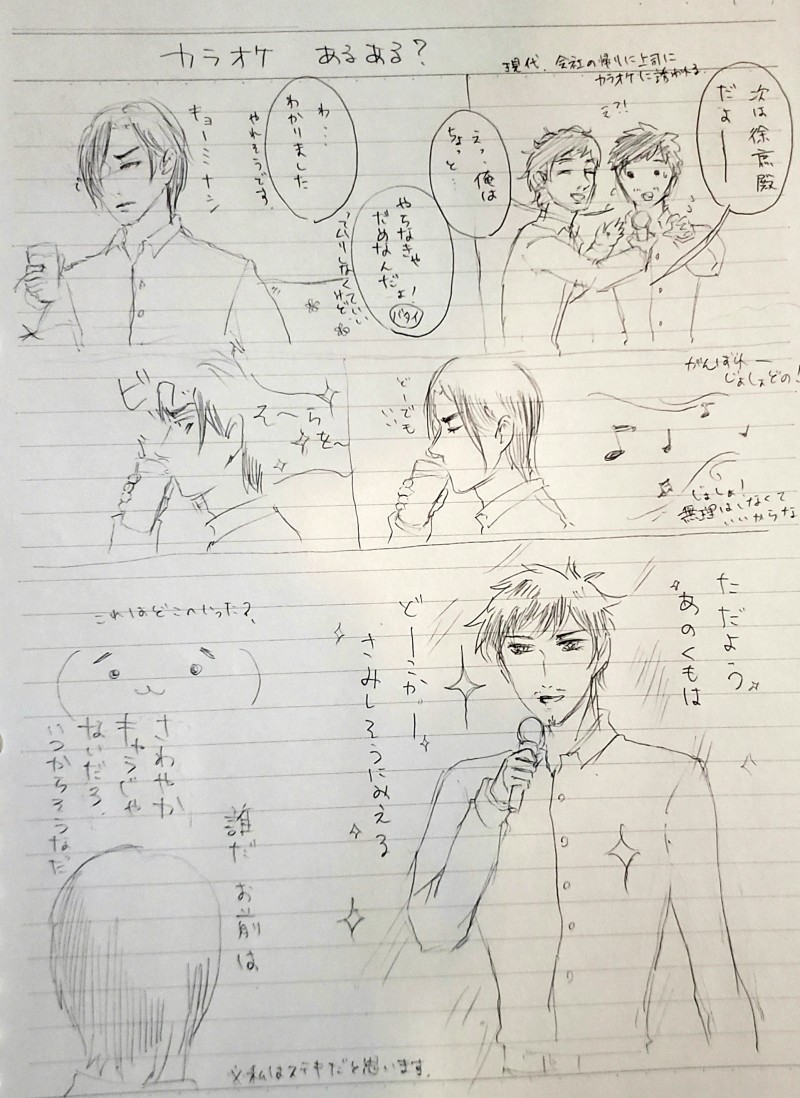 カラオケ あるある?
現代、会社の帰りに上司に
カラオケに誘われる
次は徐庶殿
だよーー
え?!
えっ、俺は
ちょっと…
やらなきゃ
だめなんだよ!
バタイ
ってムリしなくていい
けど
わ…
わかりました
やれそうです。
キョーミナシ
がんばれー
じょしょどの!
じょしょ!
無理はしなくて
いいからな
どーでも
いい
そーらを〜
ビクッ
ただよう
あのくもは
どーこかー
さみしそうにみえる
これはどこへやった?
さわやか
キャラじゃ
ないだろ、
いつからそうなだ
誰だ お前は
※私はステキだと思います。